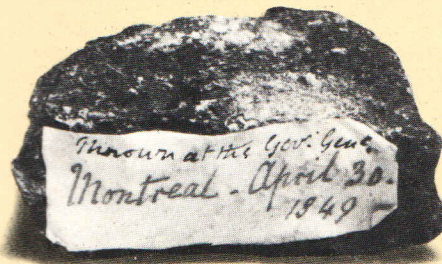 Thrown at the Gov. Genl.
Montreal - April 30.
1849 -